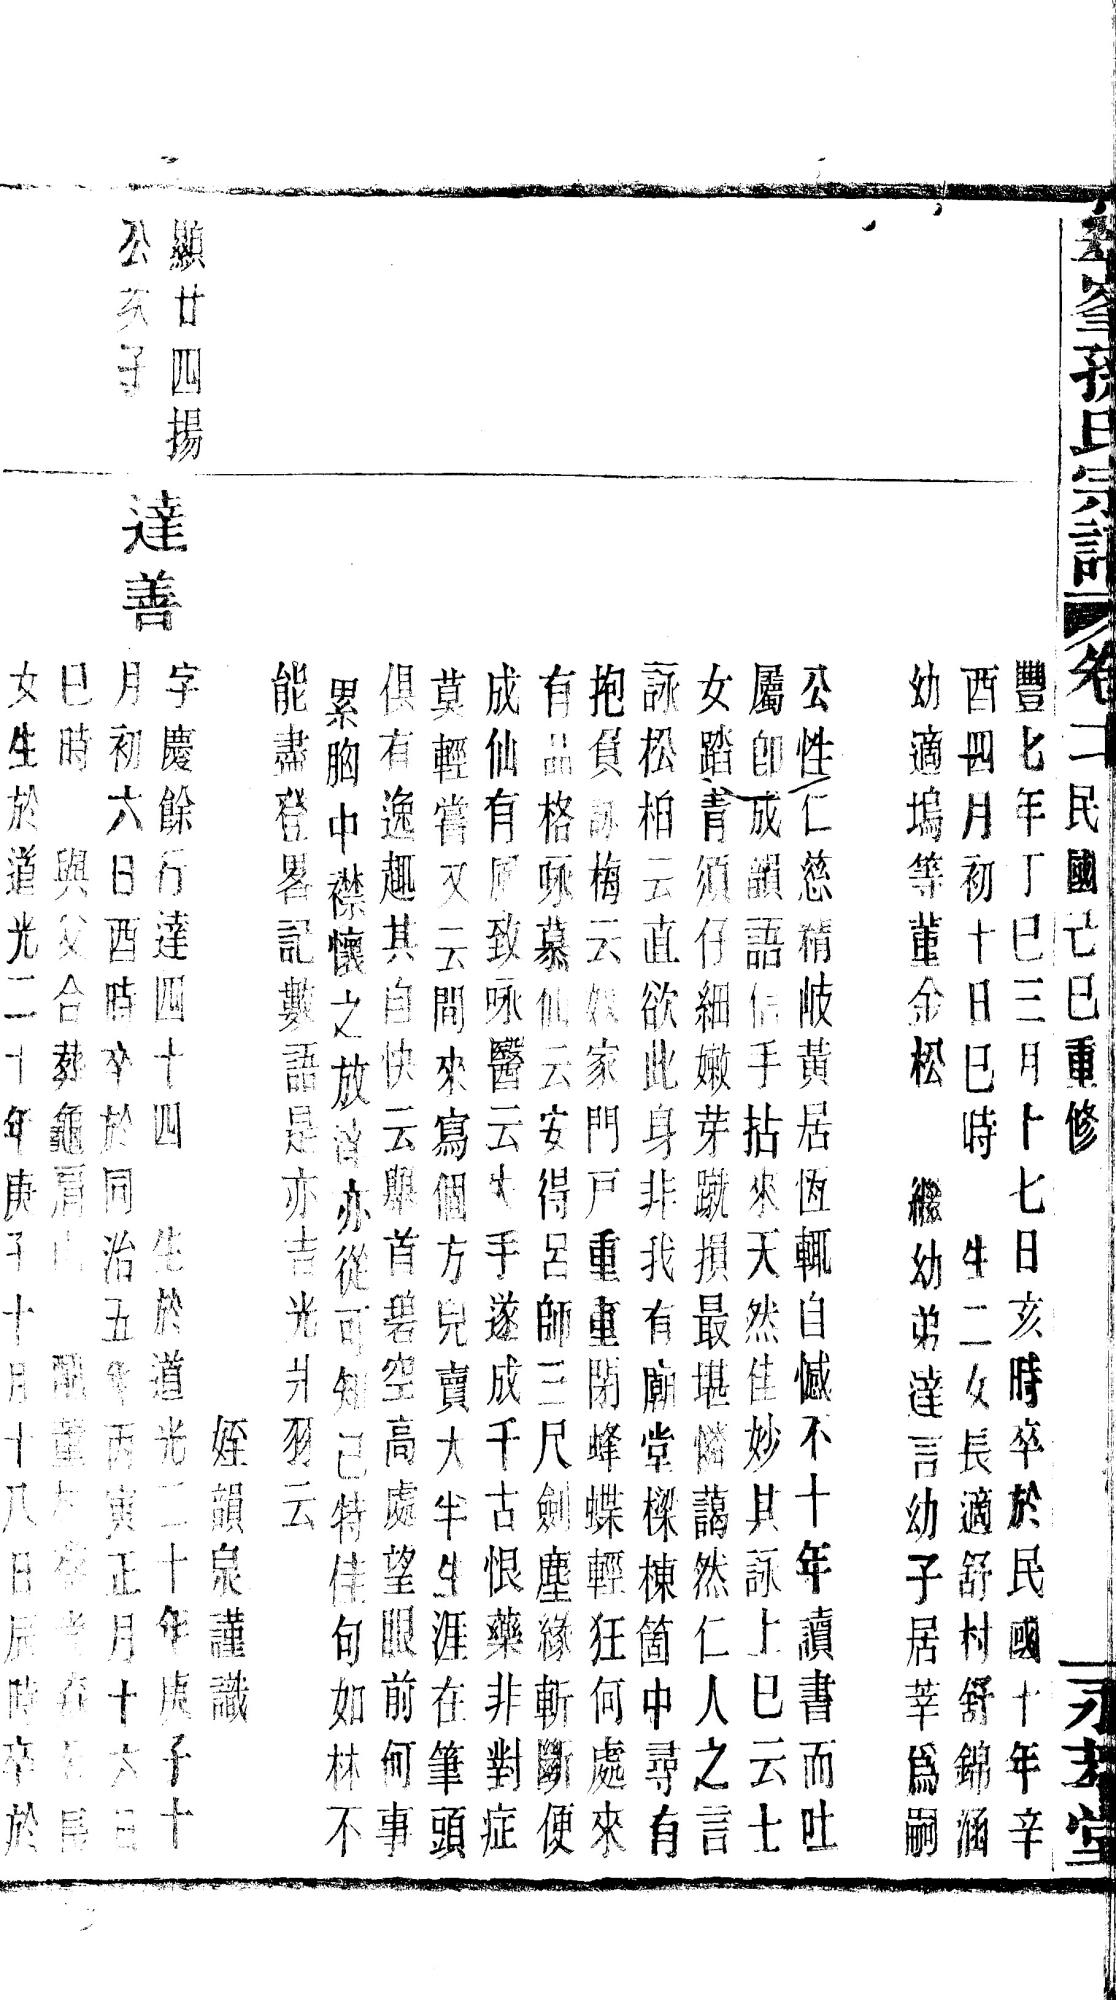 孫氏宗譜 卷二 民國己巳重修
豐七年丁巳三月十七日亥時卒於民國十年辛
酉四月初十日巳時 生二女長適舒村舒錦涵
幼適塢等董金松 繼幼弟達言幼子居莘爲嗣
公性仁慈精岐黃居恆輒自憾不十年讀書而吐
屬卽成韻語信手拈來天然佳妙其詠上巳云士
女踏青須仔細嫩芽蹴損最堪憐藹然仁人之言
詠松柏云直欲此身非我有廟堂樑棟箇中尋有
抱負詠梅云奴家門戸重重閉蜂蝶輕狂何處來
有品格咏慕仙云安得呂師三尺劍塵緣斬斷便
成仙有風致咏醫云大手遂成千古恨藥非對症
莫輕嘗又云閒來寫個方兒賣大半生涯在筆頭
俱有逸趣其自快云舉首碧空高處望眼前何事
累胸中襟懷之放達亦從可知已特佳句如林不
能盡登畧記數語是亦吉光片羽云
姪韻泉謹識
顯廿四揚
公亥子
達善
字慶餘行達四十四 生於道光二十年庚子十
月初六日酉時卒於同治五年丙寅正月十六日
巳時 與父合葬龜肩山 董
女生於道光二十年庚子十月十八日辰時卒於